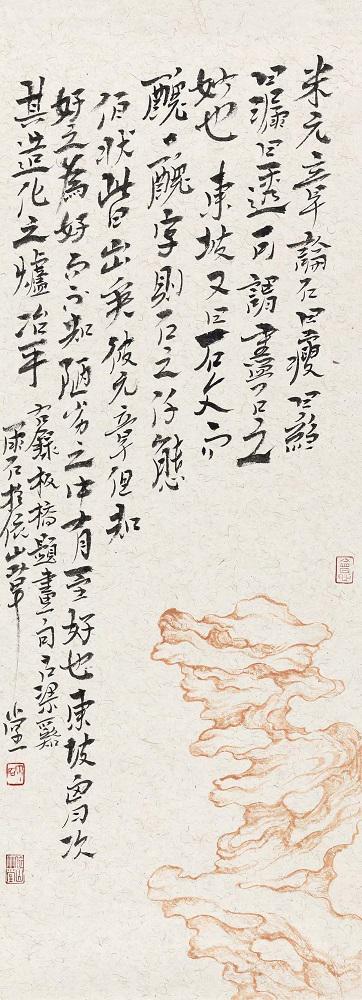 米元章論石曰瘦曰縐
曰漏曰透可謂盡石之
妙也東坡又曰石文而
醜一醜字則石之仟態
佰狀皆出矣彼元章但知
好之為好而不知陋劣之中有至好也東坡胸次
其造化之爐冶乎
右錄板橋題畫句於梁谿
雨石於山草堂